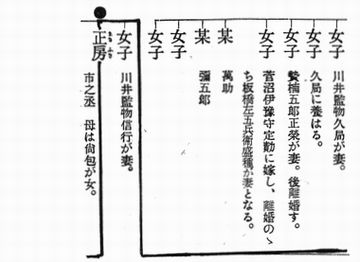 女子 川井監物久局が妻。
女子 久局に養はる。
女子 贄楠五郎正榮が妻。後離婚す。
女子 菅沼伊豫守定勳に嫁し、離婚のゝ
ち板橋左五兵衛盛種が妻となる。
某 萬助
某 彌五郎
女子
女子
女子 川井監物信行が妻。
正房 市之丞 母は尙包が女。